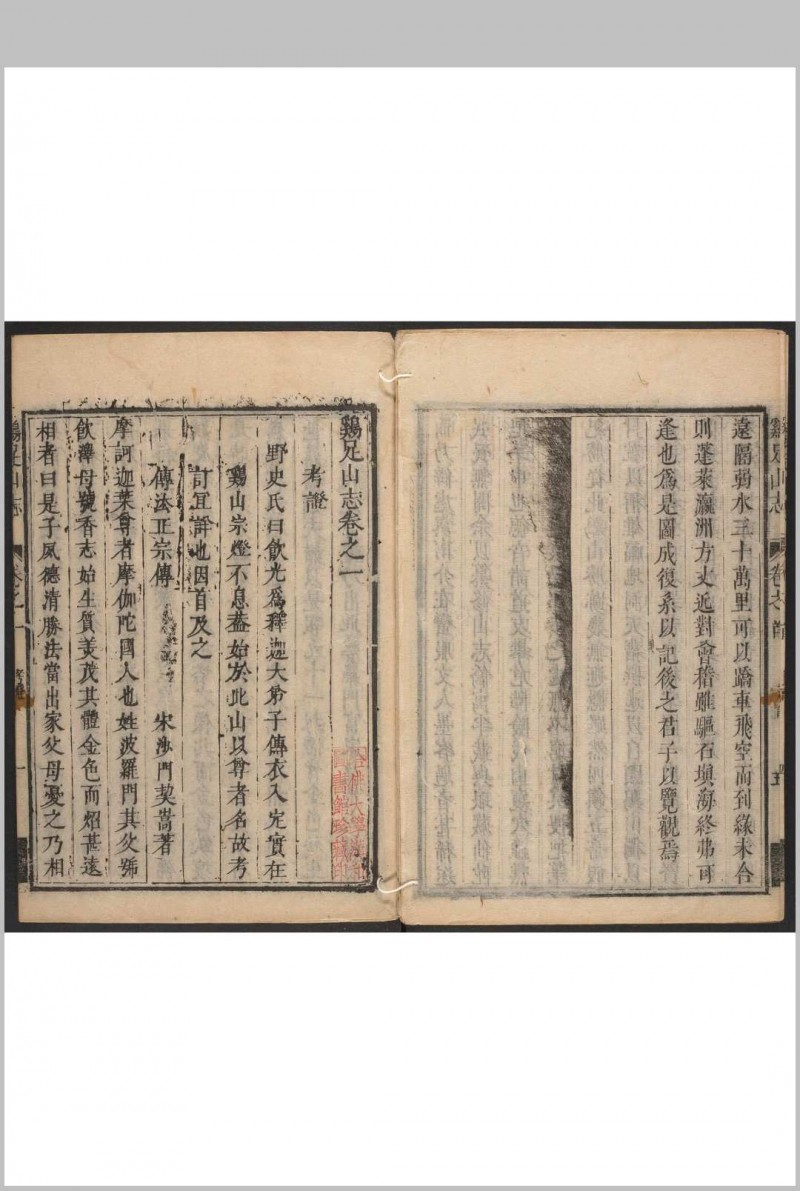 遠隔弱水三十萬里可以蹻車飛空而到緣未合
則蓬萊瀛洲方丈近對會稽雖驅石塡海終弗可
逢也爲是圖成復系以記後之君子以覽觀焉
雞足山志卷之一
考證
野史氏曰飲光爲釋迦大弟子傳衣入定實在
雞山宗燈不息葢始於此山以尊者名故考
訂宜詳也因首及之
傳法正宗傳　宋沙門契嵩著
摩訶迦葉尊者摩伽陀國人也姓波羅門其父號
飲澤母號香志始生質美茂其體金色而炤甚遠
相者曰是子夙德清勝法當出家父母憂之乃相
雞足山志
卷之一
考證
一